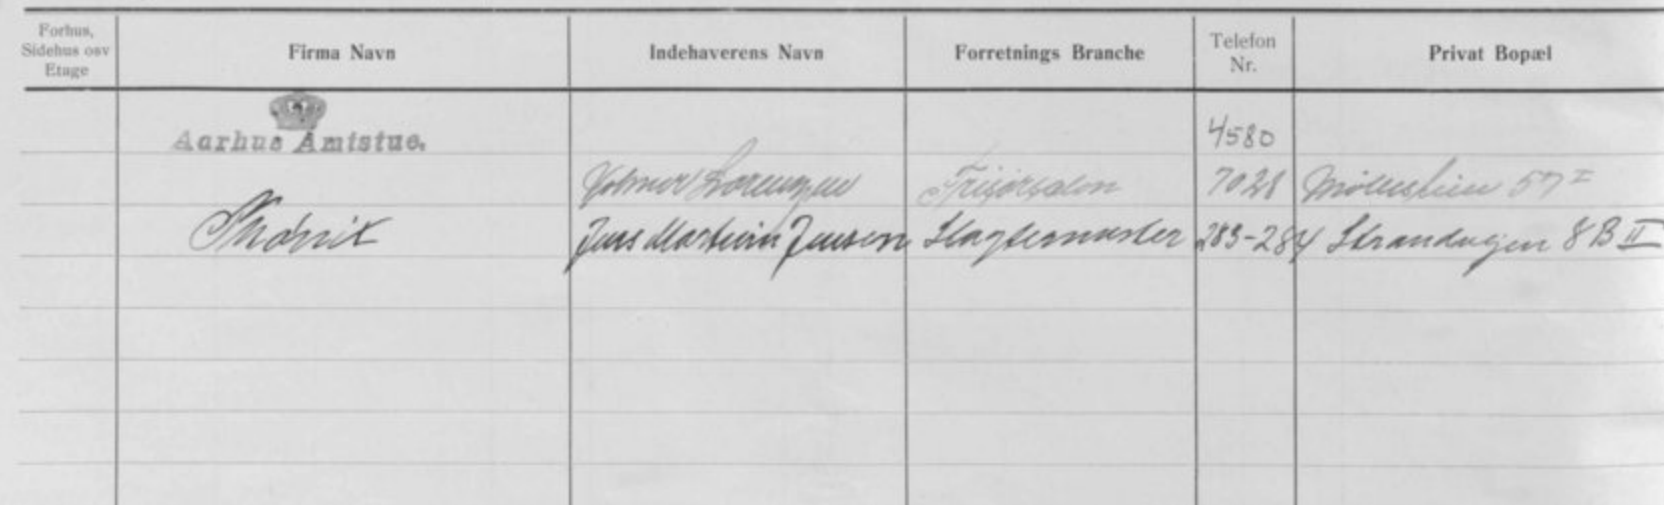 Forhus, Sidehus osv Etage Firma Navn Indehaverens Navn Forretnings Branche Telefon Nr. Privat Bopæl
Aarhus Amtstue. 4580
Volmer Lorenzen Frisørsalon 7028 57 I
Jens Martin Jensen Slagtermester 283-284 Strandvejen 8 B II